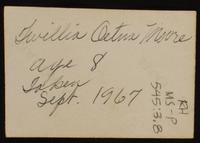 Twillia Oetna Moore
age 8
Taken
Sept. 1967
RH
MS-P
545:3.8